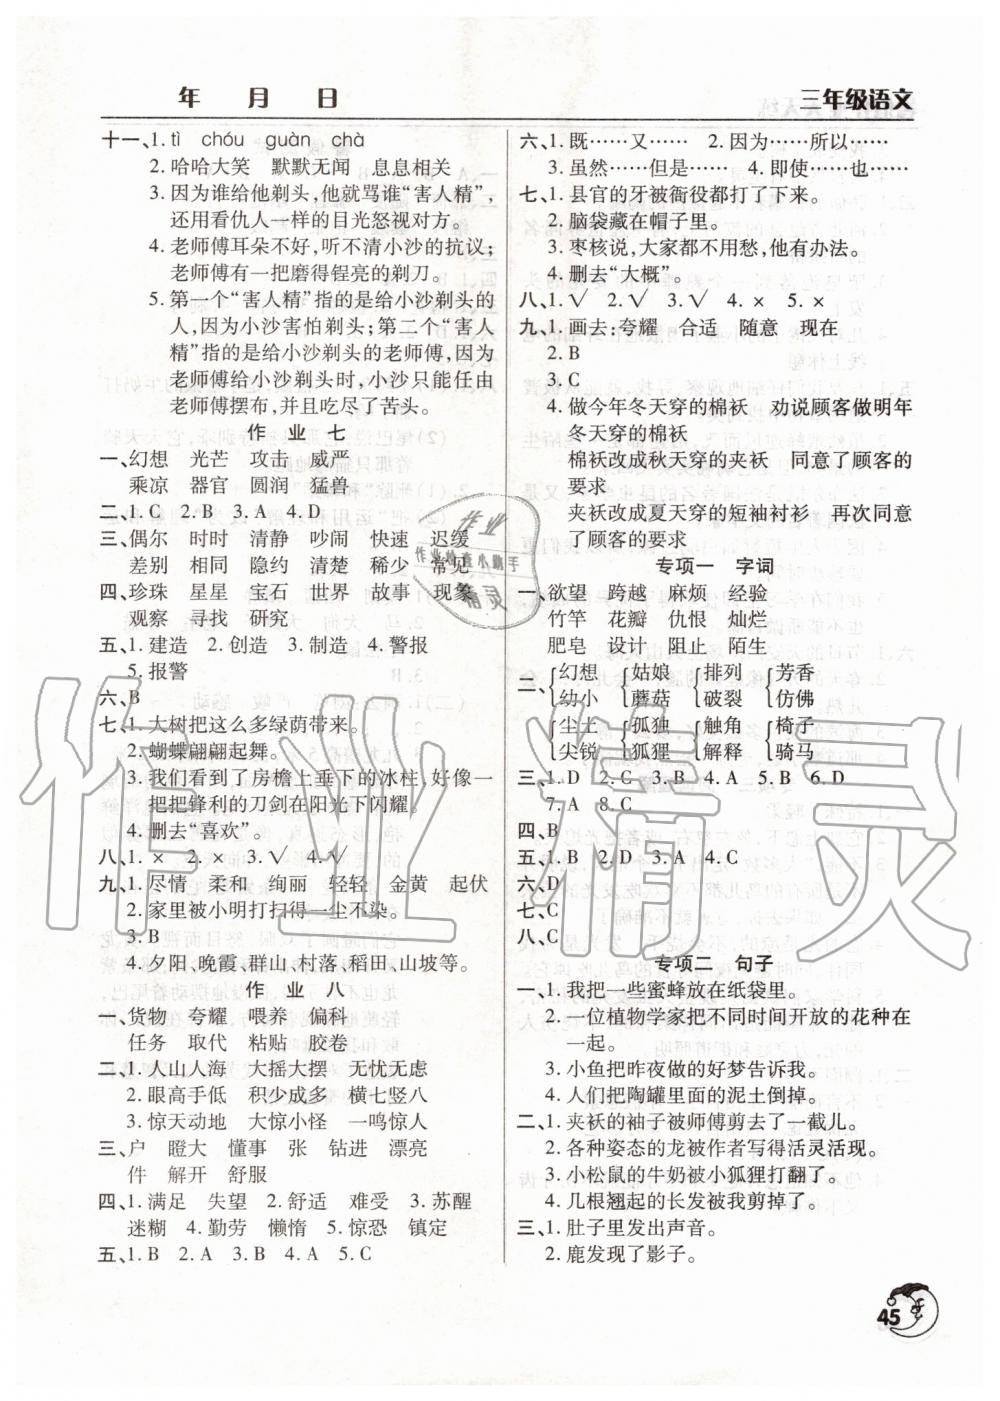 年　月　日
三年级语文
十一、1. tì　chóu　guàn　chà
2. 哈哈大笑　默默无闻　息息相关
3. 因为谁给他剃头，他就骂谁“害人精”，
还用看仇人一样的目光怒视对方。
4. 老师傅耳朵不好，听不清小沙的抗议；
老师傅有一把磨得锃亮的剃刀。
5. 第一个“害人精”指的是给小沙剃头的
人，因为小沙害怕剃头；第二个“害人
精”指的是给小沙剃头的老师傅，因为
老师傅给小沙剃头时，小沙只能任由
老师傅摆布，并且吃尽了苦头。
作　业　七
一、幻想　光芒　攻击　威严
乘凉　器官　圆润　猛兽
二、1. C　2. B　3. A　4. D
三、偶尔　时时　清静　吵闹　快速　迟缓
差别　相同　隐约　清楚　稀少　常见
四、珍珠　星星　宝石　世界　故事　现象
观察　寻找　研究
五、1. 建造　2. 创造　3. 制造　4. 警报
5. 报警
六、B
七、1. 大树把这么多绿荫带来。
2. 蝴蝶翩翩起舞。
3. 我们看到了房檐上垂下的冰柱，好像一
把把锋利的刀剑在阳光下闪耀。
4. 删去“喜欢”。
八、1. ×　2. ×　3. √　4. √
九、1. 尽情　柔和　绚丽　轻轻　金黄　起伏
2. 家里被小明打扫得一尘不染。
3. B
4. 夕阳、晚霞、群山、村落、稻田、山坡等。
作　业　八
一、货物　夸耀　喂养　偏科
任务　取代　粘贴　胶卷
二、1. 人山人海　大摇大摆　无忧无虑
2. 眼高手低　积少成多　横七竖八
3. 惊天动地　大惊小怪　一鸣惊人
三、户　瞪大　懂事　张　钻进　漂亮
件　解开　舒服
四、1. 满足　失望　2. 舒适　难受　3. 苏醒
迷糊　4. 勤劳　懒惰　5. 惊恐　镇定
五、1. B　2. A　3. B　4. A　5. C
六、1. 既……又……　2. 因为……所以……
3. 虽然……但是……　4. 即使……也……
七、1. 县官的牙被衙役都打了下来。
2. 脑袋藏在帽子里。
3. 枣核说，大家都不用愁，他有办法。
4. 删去“大概”。
八、1. √　2. √　3. √　4. ×　5. ×
九、1. 画去：夸耀　合适　随意　现在
2. B
3. C
4. 做今年冬天穿的棉袄　劝说顾客做明年
冬天穿的棉袄
棉袄改成秋天穿的夹袄　同意了顾客的
要求
夹袄改成夏天穿的短袖衬衫　再次同意
了顾客的要求
专项一　字词
一、欲望　跨越　麻烦　经验
竹竿　花瓣　仇恨　灿烂
肥皂　设计　阻止　陌生
二、{幻想　{姑娘　{排列　{芳香
幼小　蘑菇　破裂　仿佛
{尘土　{孤独　{触角　{椅子
尖锐　狐狸　解释　骑马
三、1. D　2. C　3. C　4. A　5. B　6. D
7. A　8. C
四、B
五、1. B　2. D　3. A　4. C
六、D
七、C
八、C
专项二　句子
一、1. 我把一些蜜蜂放在纸袋里。
2. 一位植物学家把不同时间开放的花种在
一起。
3. 小鱼把昨夜做的好梦告诉我。
4. 人们把陶罐里面的泥土倒掉。
二、1. 夹袄的袖子被师傅剪去了一截儿。
2. 各种姿态的龙被作者写得活灵活现。
3. 小松鼠的牛奶被小狐狸打翻了。
4. 几根翘起的长发被我剪掉了。
三、1. 肚子里发出声音。
2. 鹿发现了影子。
45
作业
作业检查小助手
精灵
作业精灵